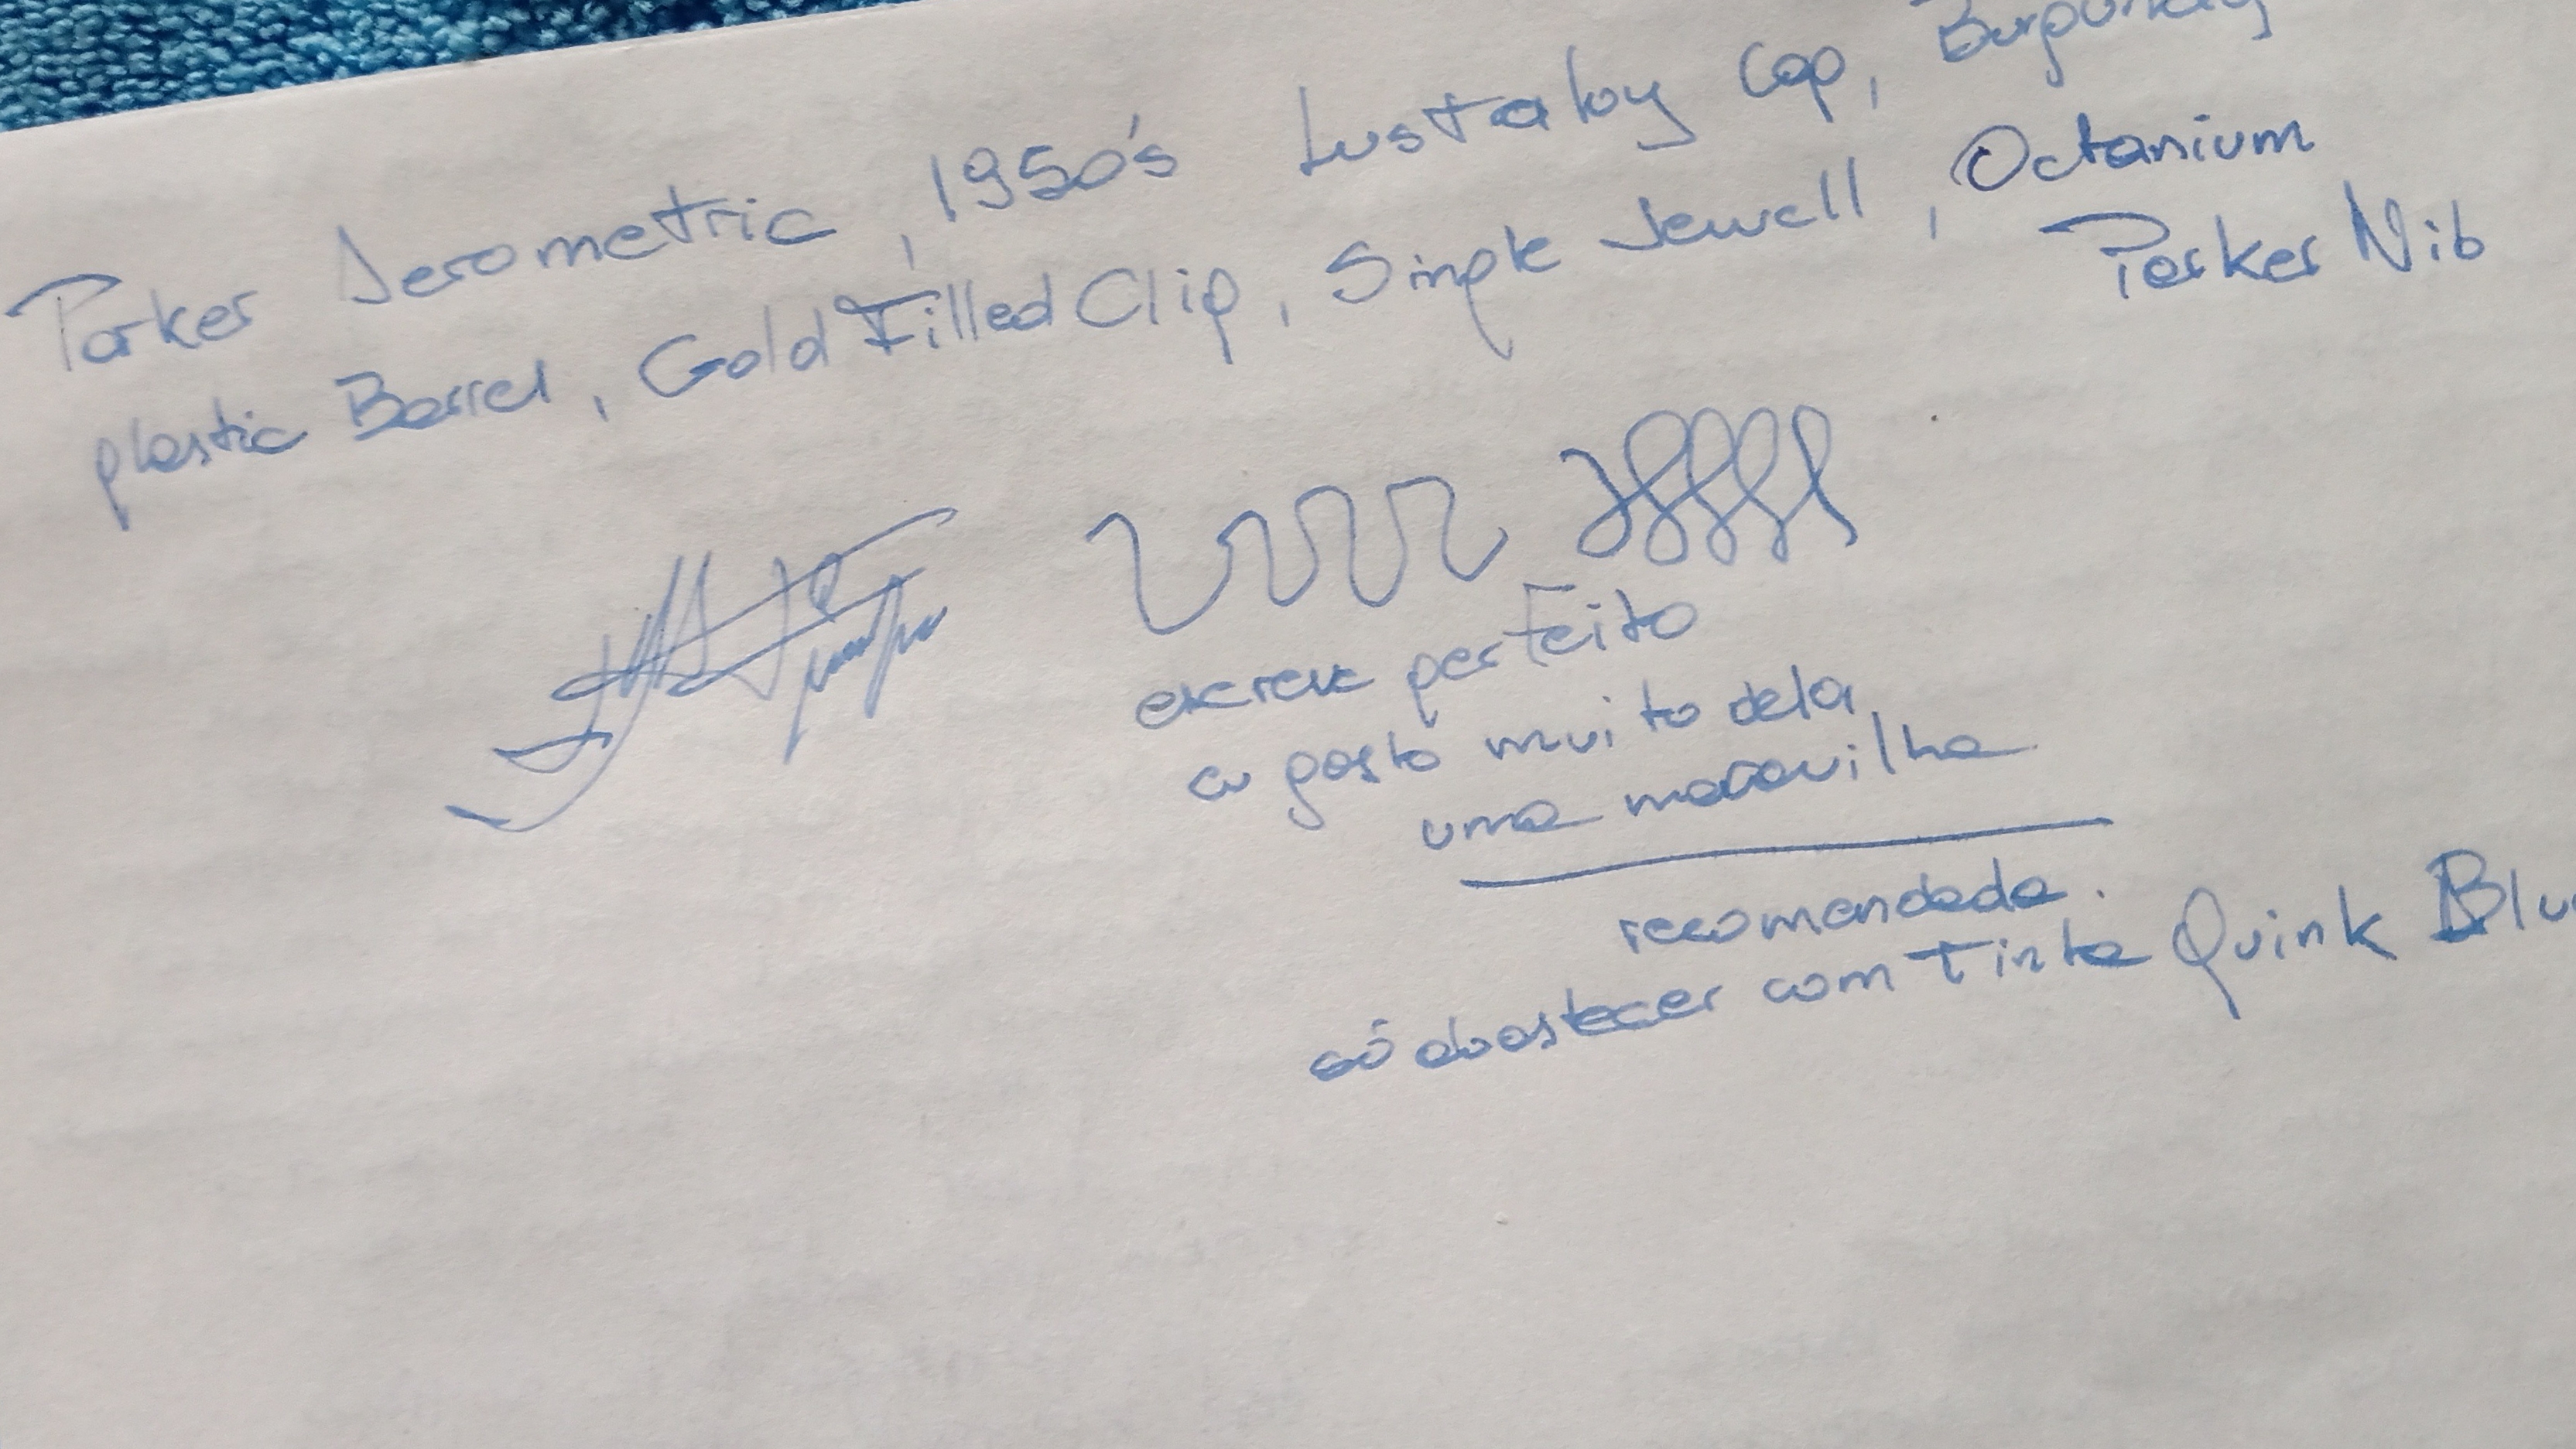 Parker Aerometric, 1950's Lustraloy Cap, Burgundy
plastic Barrel, Gold Filled Clip, Single Jewell, Octanium
Parker Nib
escreve perfeito
eu gosto muito dela
uma maravilha
recomendada.
só abastecer com Tinta Quink Blu